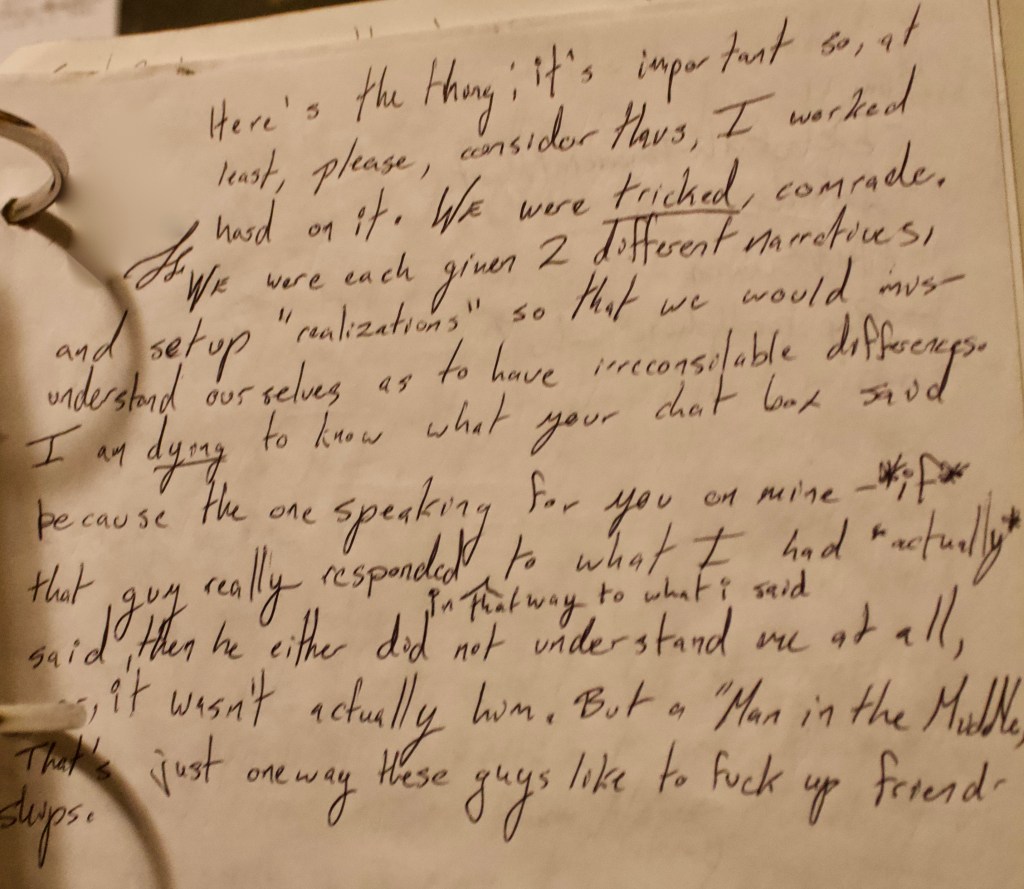 Here's the thing; it's important so, at
least, please, consider this, I worked
hard on it. WE were tricked, comrade.
WE were each given 2 different narratives,
and setup "realizations" so that we would mis-
understand ourselves as to have irreconsilable differences.
I am dying to know what your chat box said
because the one speaking for you on mine - *if*
that guy really responded to what I had *actually*
in that way to what i said
said, then he either did not understand me at all,
, it wasn't actually him. But a "Man in the Middle,
That's just one way these guys like to fuck up friend-
ships.